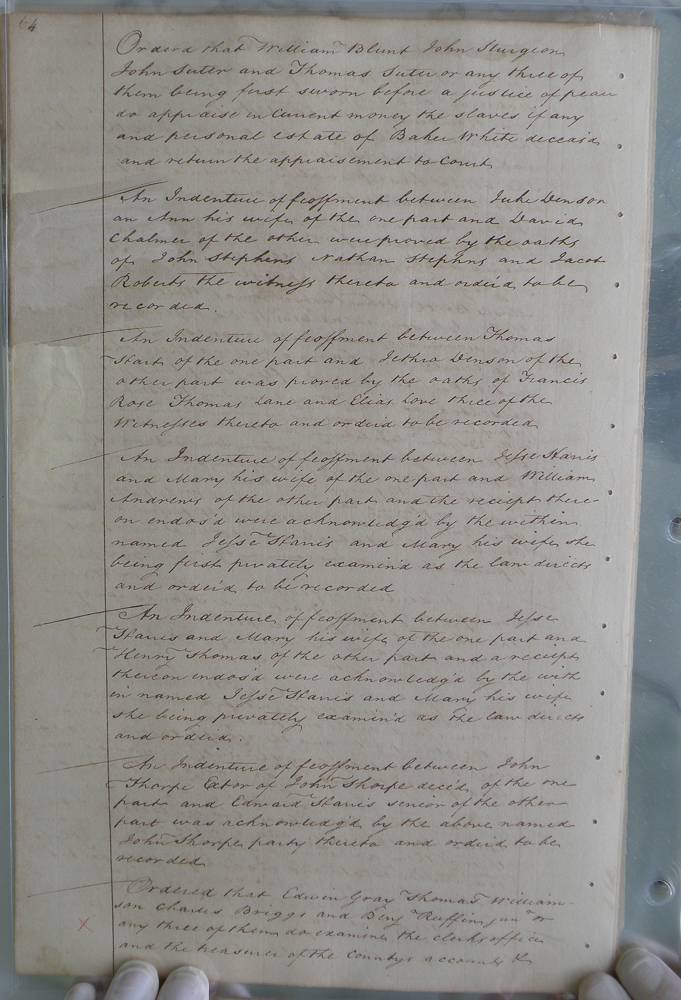 64
Orderd that William Blunt John Sturgeon
John Suter and Thomas Suter or any three of
them being first sworn before a justice of peace
do appraise in Current money the slaves if any
and personal estate of Baker White deceas'd
and return the appraisement to Court
An Indenture of feoffment between Juke Denson
an Ann his wife of the one part and David
Chalmer of the other were proved by the oaths
of John Stephens Nathan Stephns and Jacob
Roberts the witness thereto and order'd to be
recorded.
An Indenture of feoffment between Thomas
Hart of the one part and Jethro Denson of the
other part was proved by the oaths of Francis
Rose Thomas Lane and Elias Love three of the
Witnesses thereto and order'd to be recorded
An Indenture of feoffment between Jesse Harris
and Mary his wife of the one part and William
Andrews of the other part and the receipt there-
on endos'd were acknowledg'd by the within
named Jesse Harris and Mary his wife she
being first privately examin'd as the law directs
and order'd to be recorded
An Indenture of feoffment between Jesse
Harris and Mary his wife of the one part and
Henry Thomas of the other part and a receipt
thereon endos'd were acknowledg'd by the with
in named Jesse Harris and Mary his wife
she being privately examin'd as the law directs
and order'd.
An Indenture of feoffment between John
Thorpe Extor of John Thorpe dece'd of the one
part and Edward Harris senior of the other
part was acknowledg'd by the above named
John Thorpe party thereto and order'd to be
recorded
Ordered that Edwin Gray Thomas William-
son Charles Briggs and Benj Ruffin jun or
any three of them do examine the clerks office
and the treasurer of the Countys accounts &